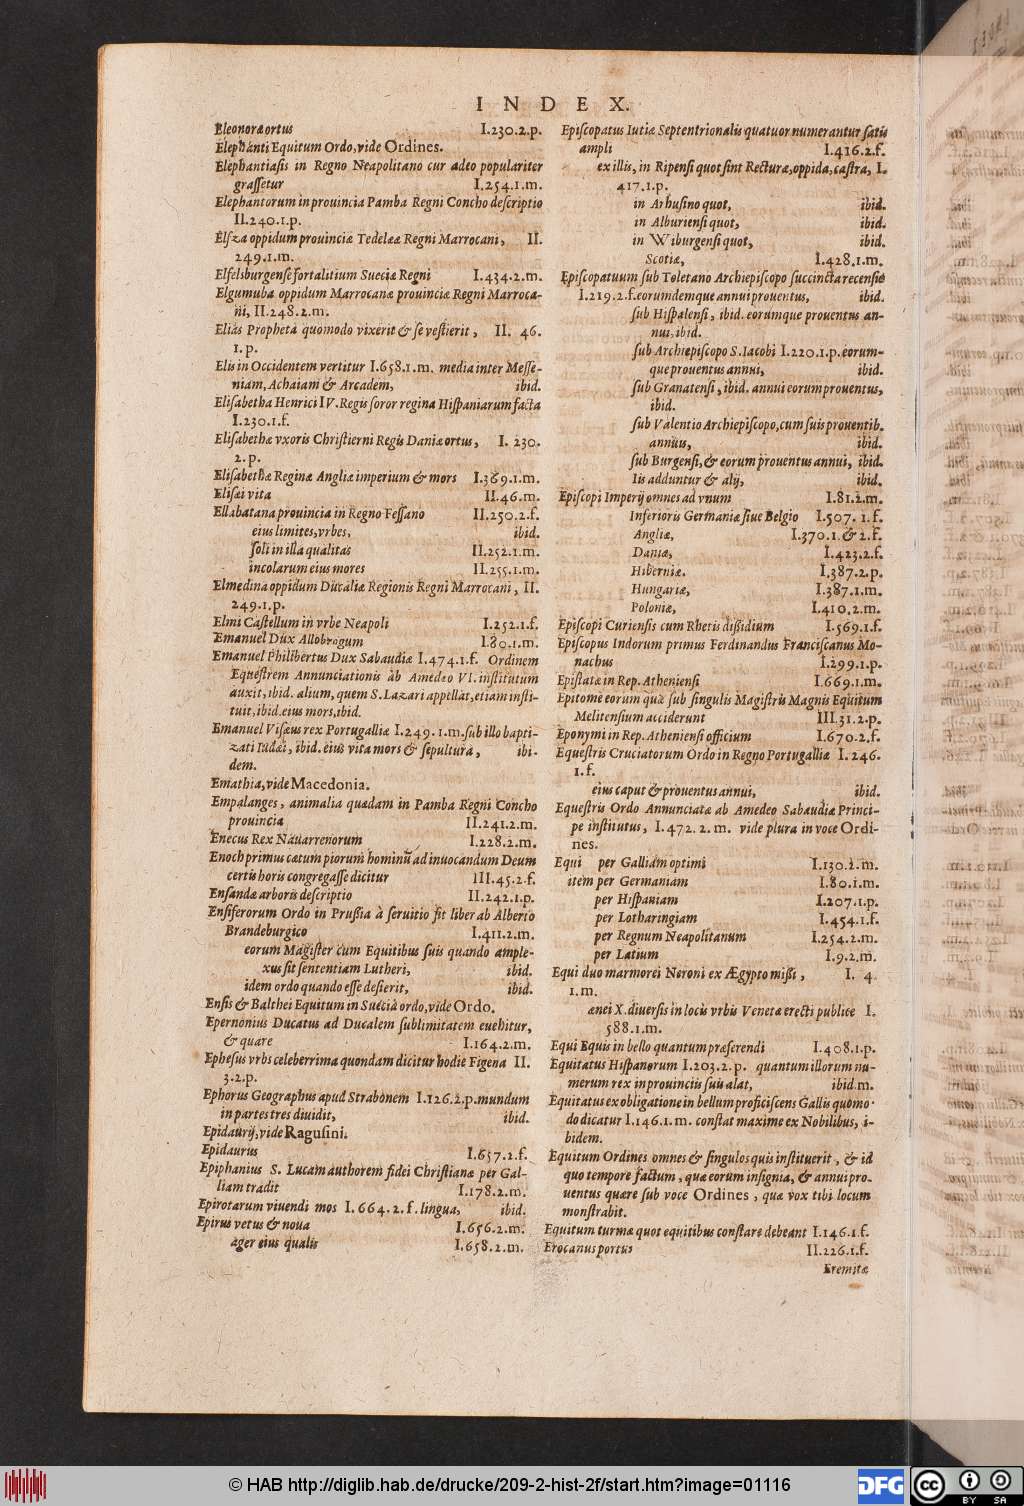 INDEX.
Eleonoræ ortus I.230.2.p.
Elephanti Equitum Ordo, vide Ordines.
Elephantiasis in Regno Neapolitano cur adeo populariter
grassetur I.254.1.m.
Elephantorum in prouincia Pamba Regni Concho descriptio
II.240.1.p.
Elsza oppidum prouinciæ Tedelææ Regni Marrocani, II.
249.1.m.
Elselsburgense fortalitium Sueciæ Regni I.434.2.m.
Elgumuba oppidum Marrocanæ prouinciæ Regni Marroca-
ni, II.248.2.m.
Elias Propheta quomodo vixerit & se vestierit, II. 46.
1.p.
Elis in Occidentem vertitur I.658.1.m. media inter Messe-
niam, Achaiam & Arcadem, ibid.
Elisabetha Henrici IV. Regis soror regina Hispaniarum facta
I.230.1.f.
Elisabethæ vxoris Christierni Regis Daniæ ortus, I. 230.
2.p.
Elisabethæ Reginæ Angliæ imperium & mors I.369.1.m.
Elisæi vita II.46.m.
Ellabatana prouincia in Regno Fessano II.250.2.f.
eius limites, vrbes, ibid.
soli in illa qualitas II.252.1.m.
incolarum eius mores II.255.1.m.
Elmedina oppidum Ducaliæ Regionis Regni Marrocani, II.
249.1.p.
Elmi Castellum in vrbe Neapoli I.252.1.f.
Emanuel Dux Allobrogum I.80.1.m.
Emanuel Philibertus Dux Sabaudiæ I.474.1.f. Ordinem
Equestrem Annunciationis ab Amedeo VI. institutum
auxit, ibid. alium, quem S. Lazari appellat, etiam insti-
tuit, ibid. eius mors, ibid.
Emanuel Visæus rex Portugalliæ I.249.1.m. sub illo bapti-
zati Iudæi, ibid. eius vita mors & sepultura, ibi-
dem.
Emathia, vide Macedonia.
Empalanges, animalia quædam in Pamba Regni Concho
prouincia II.241.2.m.
Enecus Rex Nauarrenorum I.228.2.m.
Enoch primus cætum piorum hominũ ad inuocandum Deum
certis horis congregasse dicitur III.45.2.f.
Ensandæ arboris descriptio II.242.1.p.
Ensiferorum Ordo in Prussia à seruitio fit liber ab Alberto
Brandeburgico I.411.2.m.
eorum Magister cum Equitibus suis quando ample-
xus sit sententiam Lutheri, ibid.
idem ordo quando esse desierit, ibid.
Ensis & Balthei Equitum in Suecia ordo, vide Ordo.
Epernonius Ducatus ad Ducalem sublimitatem euehitur,
& quare I.164.2.m.
Ephesus vrbs celeberrima quondam dicitur hodie Figena II.
3.2.p.
Ephorus Geographus apud Strabonem I.126.2.p. mundum
in partes tres diuidit, ibid.
Epidaurij, vide Ragusini.
Epidaurus I.657.2.f.
Epiphanius S. Lucam authorem fidei Christianæ per Gal-
liam tradit I.178.2.m.
Epirotarum viuendi mos I.664.2.f. lingua, ibid.
Epirus vetus & noua I.656.2.m.
ager eius qualis I.658.2.m.
Episcopatus Iutiæ Septentrionalis quatuor numerantur satis
ampli I.416.2.f.
ex illis, in Ripensi quot sint Recturæ, oppida, castra, I.
417.1.p.
in Arhusino quot, ibid.
in Alburiensi quot, ibid.
in Wiburgensi quot, ibid.
Scotiæ, I.428.1.m.
Episcopatuum sub Toletano Archiepiscopo succincta recensio
I.219.2.f. eorumdemque annui prouentus, ibid.
sub Hispalensi, ibid. eorumque prouentus an-
nui, ibid.
sub Archiepiscopo S. Iacobi I.220.1.p. eorum-
que prouentus annui, ibid.
sub Granatensi, ibid. annui eorum prouentus,
ibid.
sub Valentio Archiepiscopo, cum suis prouentib.
annuis, ibid.
sub Burgensi, & eorum prouentus annui, ibid.
Iis adduntur & alij, ibid.
Episcopi Imperij omnes ad vnum I.81.2.m.
Inferioris Germaniæ siue Belgio I.507.1.f.
Angliæ, I.370.1. & 2.f.
Daniæ, I.423.2.f.
Hiberniæ. I.387.2.p.
Hungariæ, I.387.1.m.
Poloniæ, I.410.2.m.
Episcopi Curiensis cum Rhetis dissidium I.569.1.f.
Episcopus Indorum primus Ferdinandus Franciscanus Mo-
nachus I.299.1.p.
Epistatæ in Rep. Atheniensi I.669.1.m.
Epitome eorum quæ sub singulis Magistris Magnis Equitum
Melitensium acciderunt III.31.2.p.
Eponymi in Rep. Atheniensi officium I.670.2.f.
Equestris Cruciatorum Ordo in Regno Portugalliæ I.246.
1.f.
eius caput & prouentus annui, ibid.
Equestris Ordo Annunciatæ ab Amedeo Sabaudiæ Princi-
pe institutus, I.472.2.m. vide plura in voce Ordi-
nes.
Equi per Galliam optimi I.130.2.m.
item per Germaniam I.80.1.m.
per Hispaniam I.207.1.p.
per Lotharingiam I.454.1.f.
per Regnum Neapolitanum I.254.2.m.
per Latium I.9.2.m.
Equi duo marmorei Neroni ex Ægypto missi, I. 4
1.m.
ænei X. diuersis in locis vrbis Venetæ erecti publice I.
588.1.m.
Equi Equis in bello quantum præferendi I.408.1.p.
Equitatus Hispanorum I.203.2.p. quantum illorum nu-
merum rex in prouinciis suis alat, ibid.m.
Equitatus ex obligatione in bellum proficiscens Gallis quomo-
do dicatur I.146.1.m. constat maxime ex Nobilibus, i-
bidem.
Equitum Ordines omnes & singulos quis instituerit, & id
quo tempore factum, quæ eorum insignia, & annui pro-
uentus quære sub voce Ordines, quæ vox tibi locum
monstrabit.
Equitum turmæ quot equitibus constare debeant I.146.1.f.
Erocanus portus II.226.1.f.
Eremitæ
© HAB http://diglib.hab.de/drucke/209-2-hist-2f/start.htm?image=01116
DFG
cc
BY SA